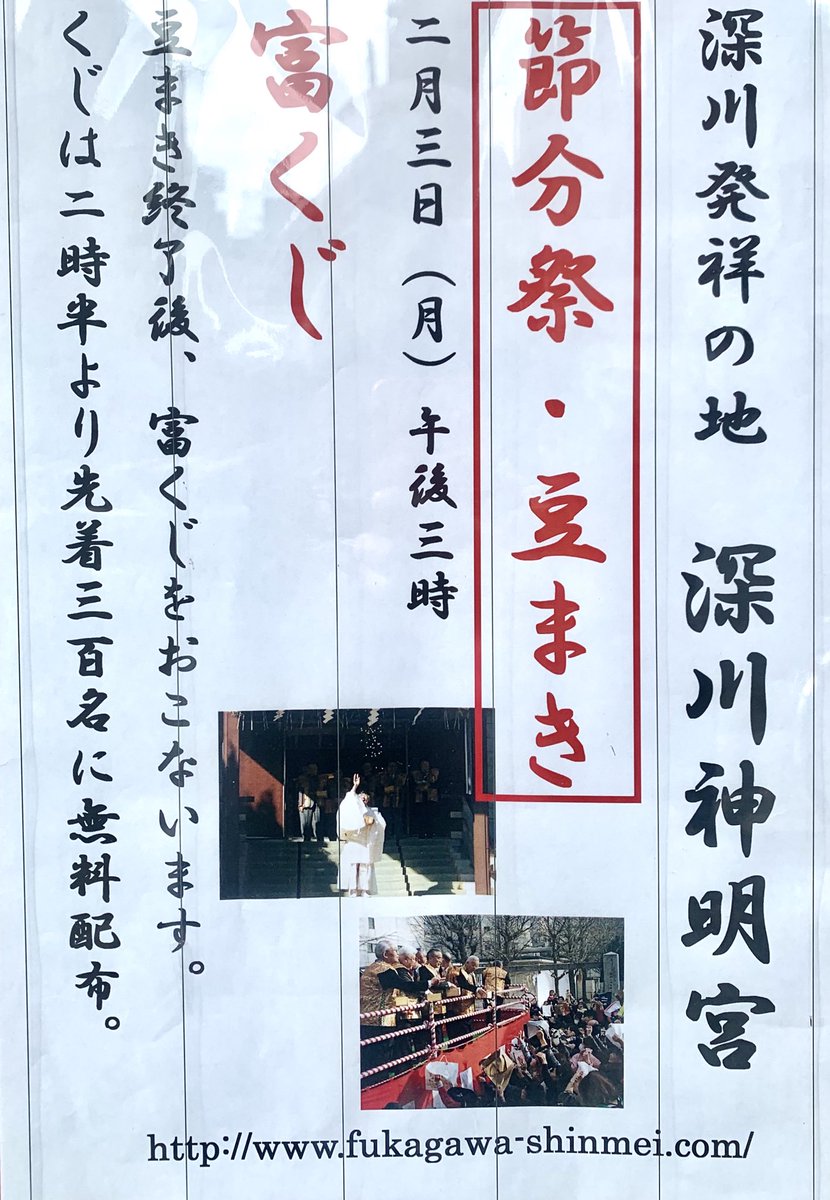 深川発祥の地 深川神明宮
節分祭・豆まき
二月三日（月）午後三時
富くじ
豆まき終了後、富くじをおこないます。
くじは二時半より先着三百名に無料配布。
http://www.fukagawa-shinmei.com/